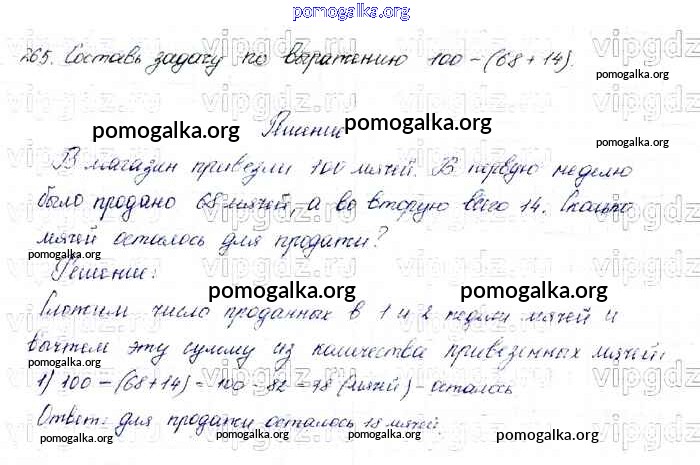 pomogalka.org
265. Составь задачу по выражению 100 - (68 + 14).
pomogalka.org
pomogalka.org
Решение
pomogalka.org
pomogalka.org
В магазин привезли 100 мячей. В первую неделю
было продано 68 мячей, а во вторую всего 14. Сколько
мячей осталось для продажи?
Решение:
pomogalka.org
pomogalka.org
Сложим число проданных в 1 и 2 недели мячей и
вычтем эту сумму из количества привезенных мячей:
1) 100 - (68 + 14) = 100 - 82 = 18 (мячей) - осталось
Ответ: для продажи осталось 18 мячей.
pomogalka.org
pomogalka.org
pomogalka.org
vipgdz.ru